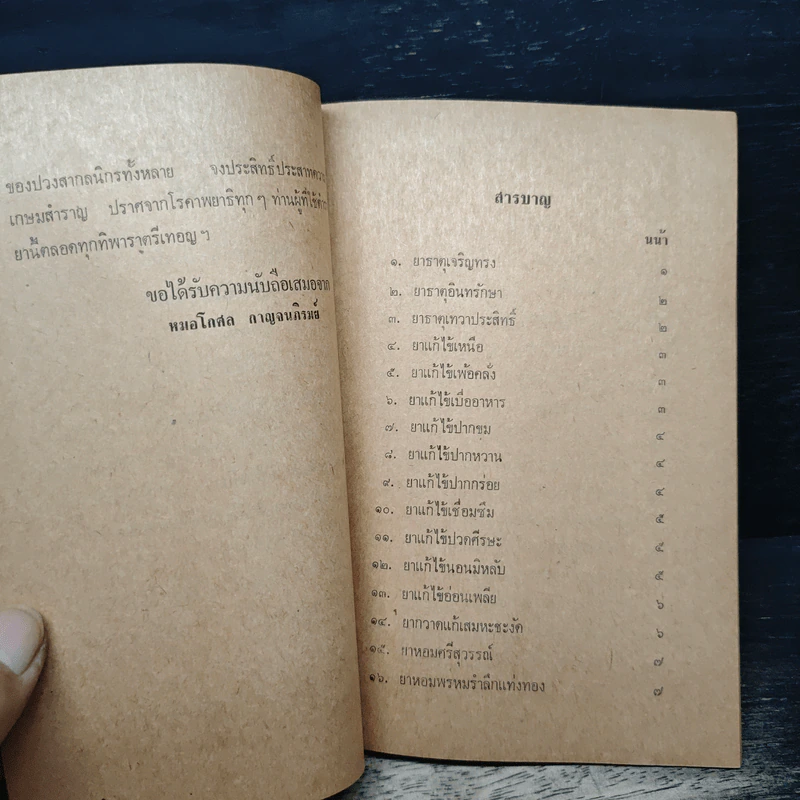 ของปวงสากลนิกรทั้งหลาย จงประสิทธิ์ประสาท
เกษมสำราญ ปราศจากโรคาพยาธิทุก ๆ ท่านผู้ที่ใช้
ยานี้ตลอดทุกทิพาราตรีเทอญ ฯ
ขอได้รับความนับถือเสมอจาก
หมอโกศล กาญจนภิรมย์
สารบาญ
หน้า
๑. ยาธาตุเจริญทรง ๑
๒. ยาธาตุอินทรักษา ๒
๓. ยาธาตุเทวาประสิทธิ์ ๒
๔. ยาแก้ไข้เหนือ ๓
๕. ยาแก้ไข้เพ้อคลั่ง ๓
๖. ยาแก้ไข้เบื่ออาหาร ๓
๗. ยาแก้ไข้ปากขม ๔
๘. ยาแก้ไข้ปากหวาน ๔
๙. ยาแก้ไข้ปากกร่อย ๔
๑๐. ยาแก้ไข้เซื่อมซึม ๕
๑๑. ยาแก้ไข้ปวดศีรษะ ๕
๑๒. ยาแก้ไข้นอนมิหลับ ๕
๑๓. ยาแก้ไข้อ่อนเพลีย ๖
๑๔. ยากวาดแก้เสมหะชะงัด ๖
๑๕. ยาหอมศรีสุวรรณ์ ๗
๑๖. ยาหอมพรหมรำลึกแท่งทอง ๗